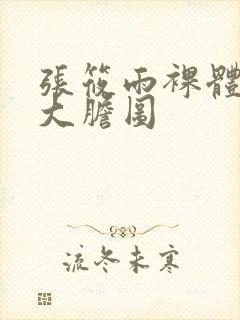 張筱雨裸體
大膽圖
流冬未寒